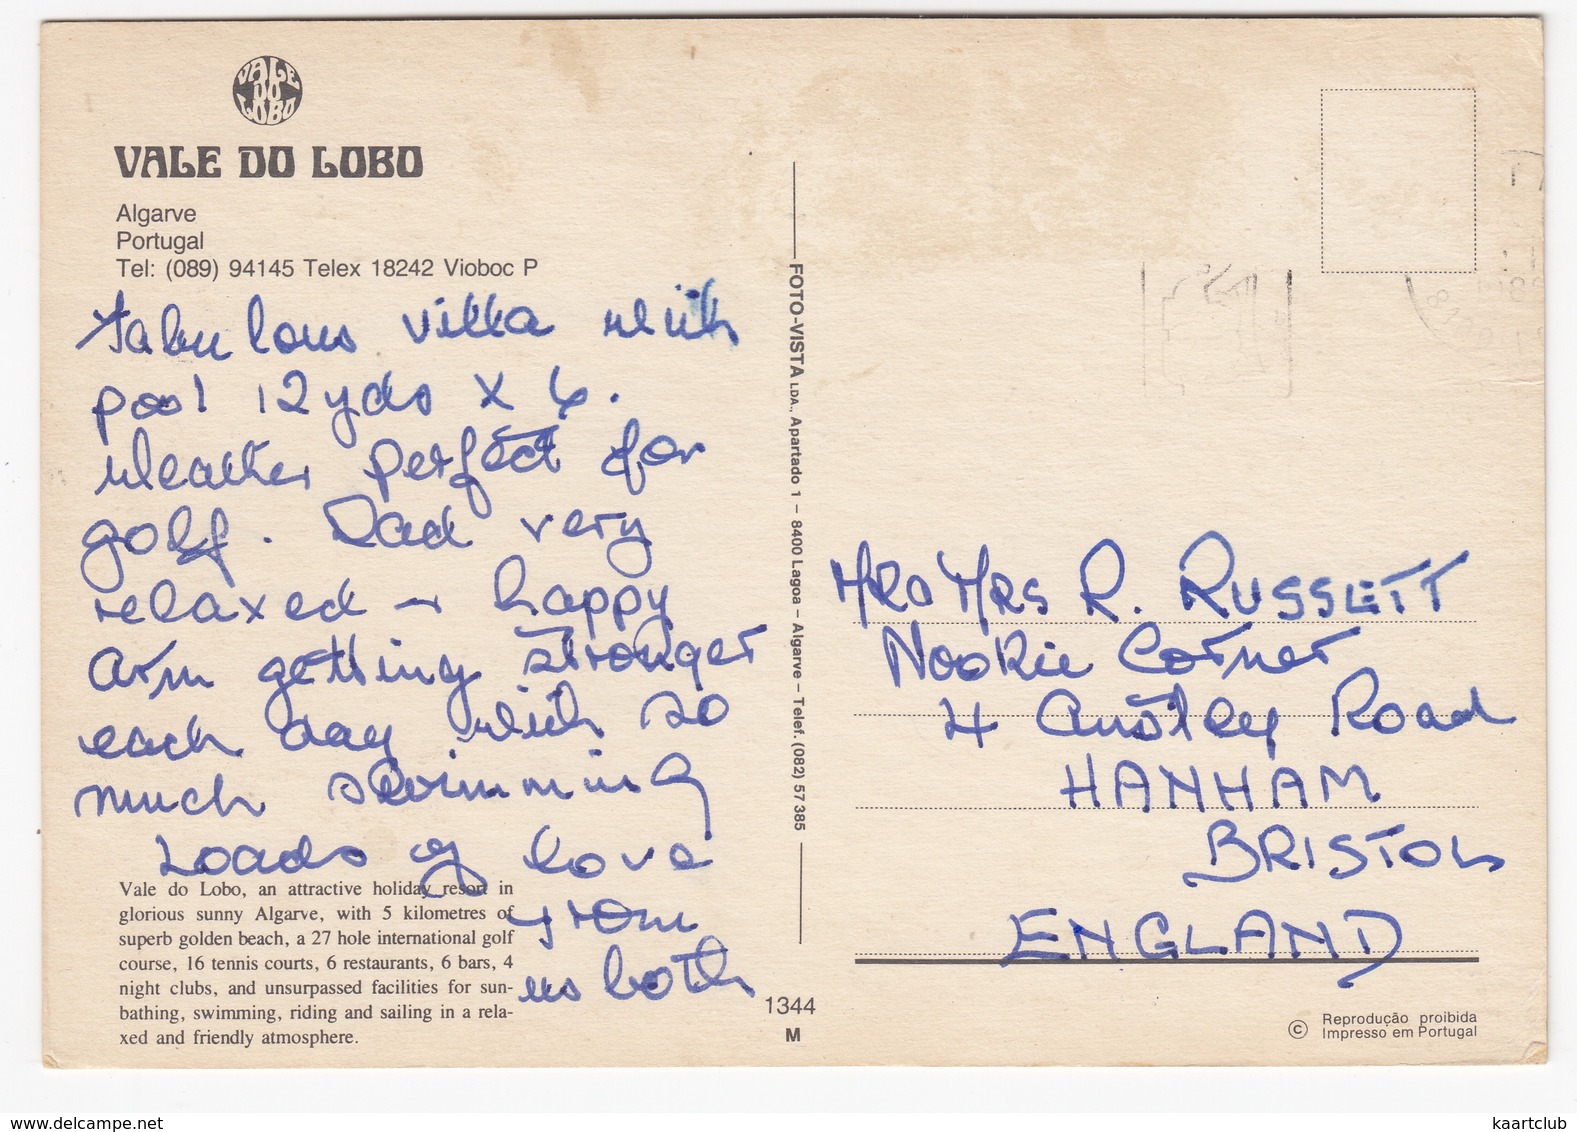 VALE DO LOBO
VALE DO LOBO
Algarve
Portugal
Tel: (089) 94145 Telex 18242 Vioboc P
Fabulous villa with
pool 12yds x 6.
Weather perfect for
golf. Dad very
relaxed + happy
arm getting stronger
each day with so
much swimming
Loads of love
from
us both
Vale do Lobo, an attractive holiday resort in
glorious sunny Algarve, with 5 kilometres of
superb golden beach, a 27 hole international golf
course, 16 tennis courts, 6 restaurants, 6 bars, 4
night clubs, and unsurpassed facilities for sun-
bathing, swimming, riding and sailing in a rela-
xed and friendly atmosphere.
FOTO-VISTA LDA., Apartado 1 – 8400 Lagoa – Algarve – Telef. (082) 57 385
1344
M
MR & MRS R. RUSSETT
Nookie Corner
4 Anstey Road
HANHAM
BRISTOL
ENGLAND
© Reprodução proibida
Impresso em Portugal
kaartclub